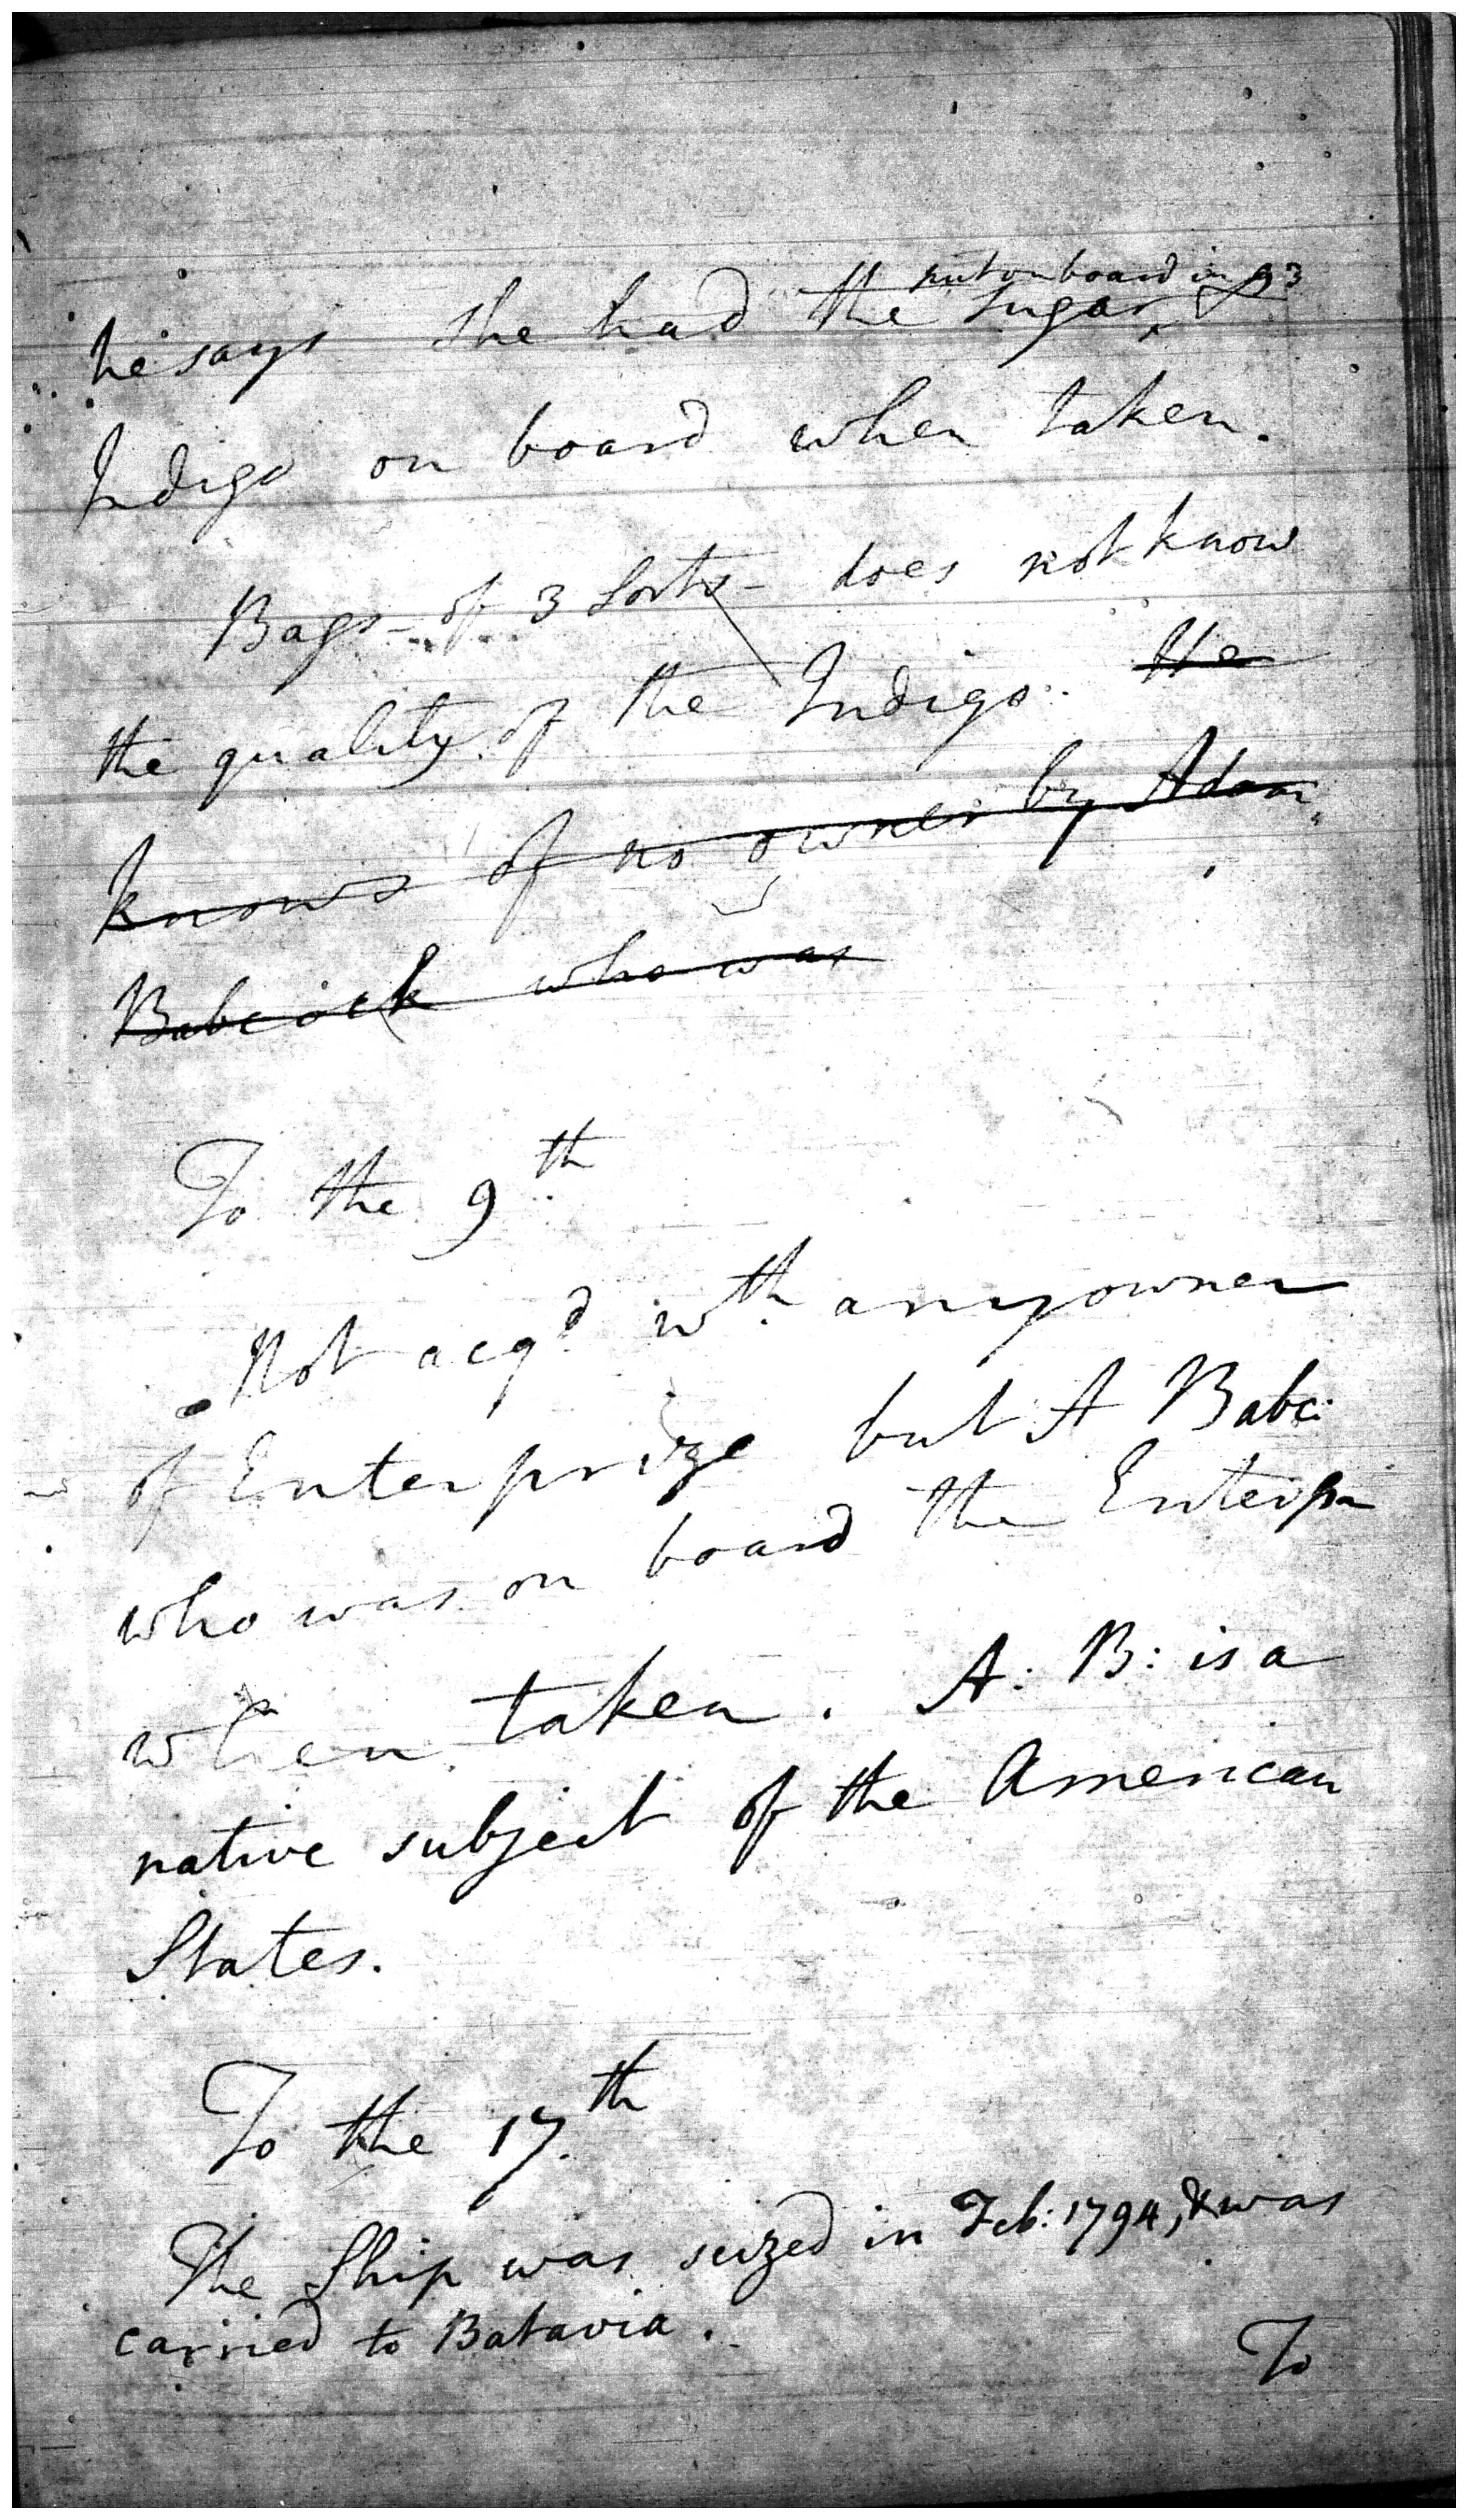 put on board in 93
he says she had the Sugar &
Indigo on board when taken.
Bags - of 3 Sorts - does not know
the quality of the Indigo. He
knows of no owner by Adam
Babcock who was
To the 9th
Not acqd wth any owner
of Enterprize but A Babc:
who was on board the Enterpr
when taken. A: B: is a
native subject of the American
States.
To the 17th
The Ship was seized in Feb: 1794, & was
carried to Batavia.
To